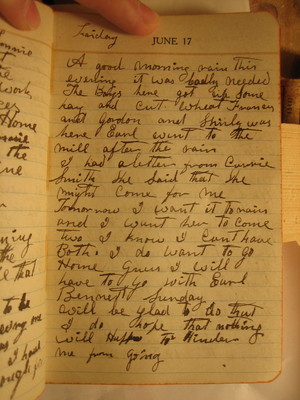 Friday
JUNE 17
A good morning rain this
evening it was badly needed
The Boys here got up some
hay and cut wheat Frances
and Gordon and Shirly was
here Earl went to the
mill after the rain
I had a letter from
Smith She Said that She
might Come for me
Tomorrow I want it to rain
and I want her to Come
two I know I Cant have
Both. I do want to go
Home Guess I will
have to go with Earl
Bennett Sunday
will be glad to do that
I do hope that nothing
will Happ to Hinder
me from going
Home
the
that
to be
me
I have